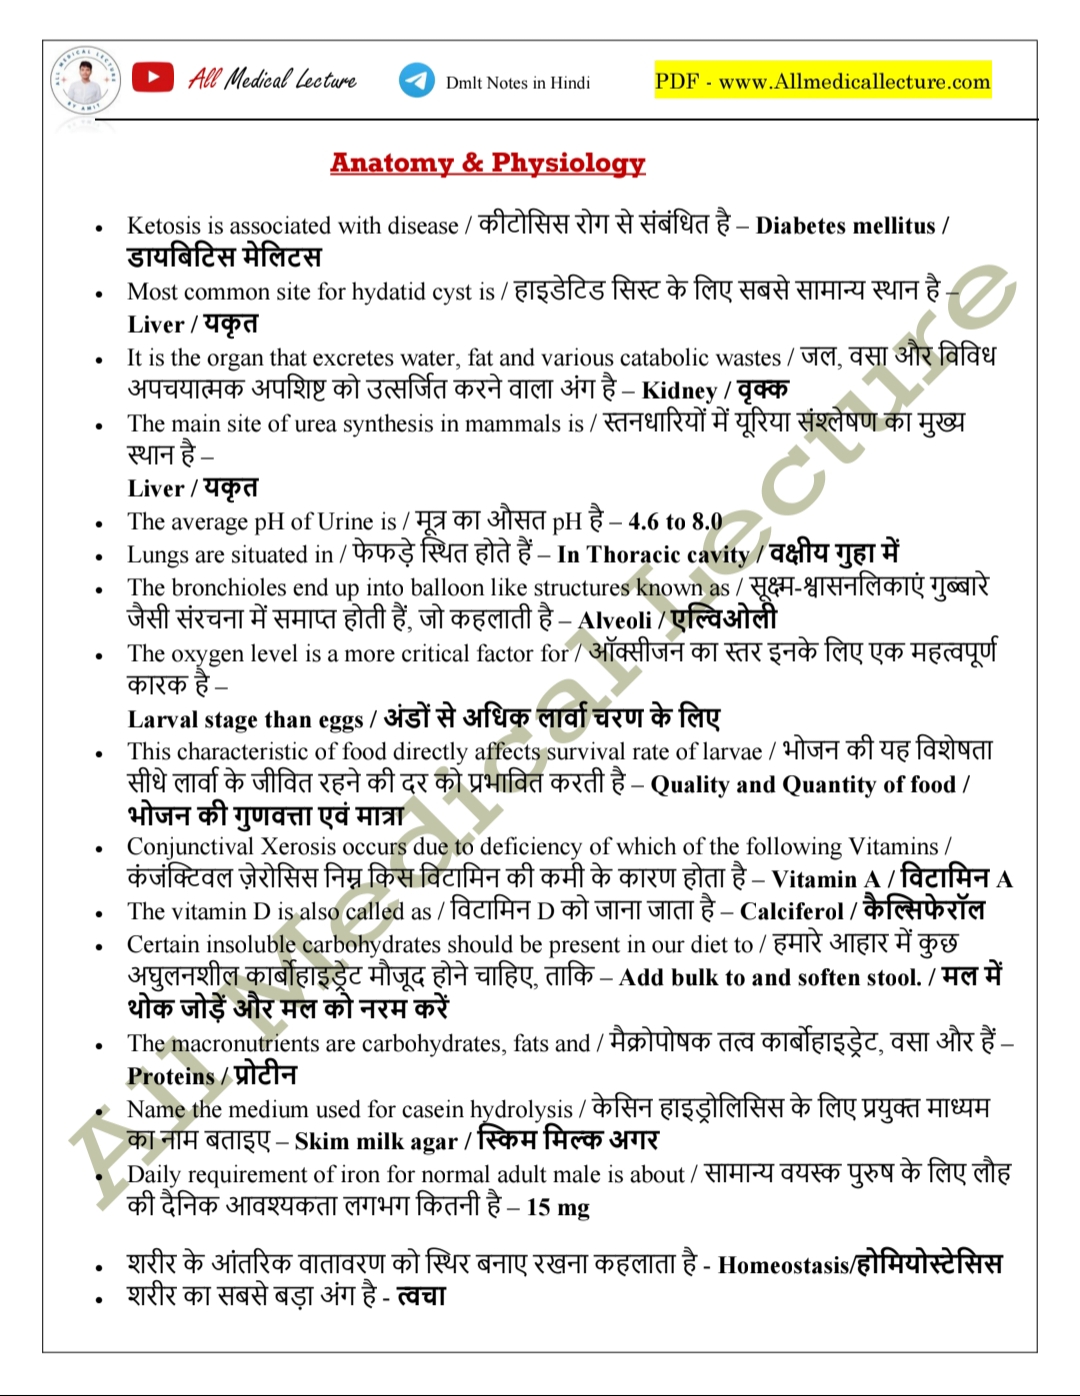 All Medical Lecture
Dmlt Notes in Hindi
PDF - www.Allmedicallecture.com
Anatomy & Physiology
• Ketosis is associated with disease / कीटोसिस रोग से संबंधित है – Diabetes mellitus /
डायबिटिस मेलिटस
• Most common site for hydatid cyst is / हाइडेटिड सिस्ट के लिए सबसे सामान्य स्थान है –
Liver / यकृत
• It is the organ that excretes water, fat and various catabolic wastes / जल, वसा और विविध
अपचयात्मक अपशिष्ट को उत्सर्जित करने वाला अंग है – Kidney / वृक्क
• The main site of urea synthesis in mammals is / स्तनधारियों में यूरिया संश्लेषण का मुख्य
स्थान है –
Liver / यकृत
• The average pH of Urine is / मूत्र का औसत pH है – 4.6 to 8.0
• Lungs are situated in / फेफड़े स्थित होते हैं – In Thoracic cavity / वक्षीय गुहा में
• The bronchioles end up into balloon like structures known as / सूक्ष्म-श्वासनलिकाएं गुब्बारे
जैसी संरचना में समाप्त होती हैं, जो कहलाती है – Alveoli / एल्विओली
• The oxygen level is a more critical factor for / ऑक्सीजन का स्तर इनके लिए एक महत्वपूर्ण
कारक है –
Larval stage than eggs / अंडों से अधिक लार्वा चरण के लिए
• This characteristic of food directly affects survival rate of larvae / भोजन की यह विशेषता
सीधे लार्वा के जीवित रहने की दर को प्रभावित करती है – Quality and Quantity of food /
भोजन की गुणवत्ता एवं मात्रा
• Conjunctival Xerosis occurs due to deficiency of which of the following Vitamins /
कंजंक्टिवल ज़ेरोसिस निम्न किस विटामिन की कमी के कारण होता है – Vitamin A / विटामिन A
• The vitamin D is also called as / विटामिन D को जाना जाता है – Calciferol / कैल्सिफेरॉल
• Certain insoluble carbohydrates should be present in our diet to / हमारे आहार में कुछ
अघुलनशील कार्बोहाइड्रेट मौजूद होने चाहिए, ताकि – Add bulk to and soften stool. / मल में
थोक जोड़ें और मल को नरम करें
• The macronutrients are carbohydrates, fats and / मैक्रोपोषक तत्व कार्बोहाइड्रेट, वसा और हैं –
Proteins / प्रोटीन
• Name the medium used for casein hydrolysis / केसिन हाइड्रोलिसिस के लिए प्रयुक्त माध्यम
का नाम बताइए – Skim milk agar / स्किम मिल्क अगर
• Daily requirement of iron for normal adult male is about / सामान्य वयस्क पुरुष के लिए लौह
की दैनिक आवश्यकता लगभग कितनी है – 15 mg
• शरीर के आंतरिक वातावरण को स्थिर बनाए रखना कहलाता है - Homeostasis/होमियोस्टेसिस
• शरीर का सबसे बड़ा अंग है - त्वचा
All Medical Lecture